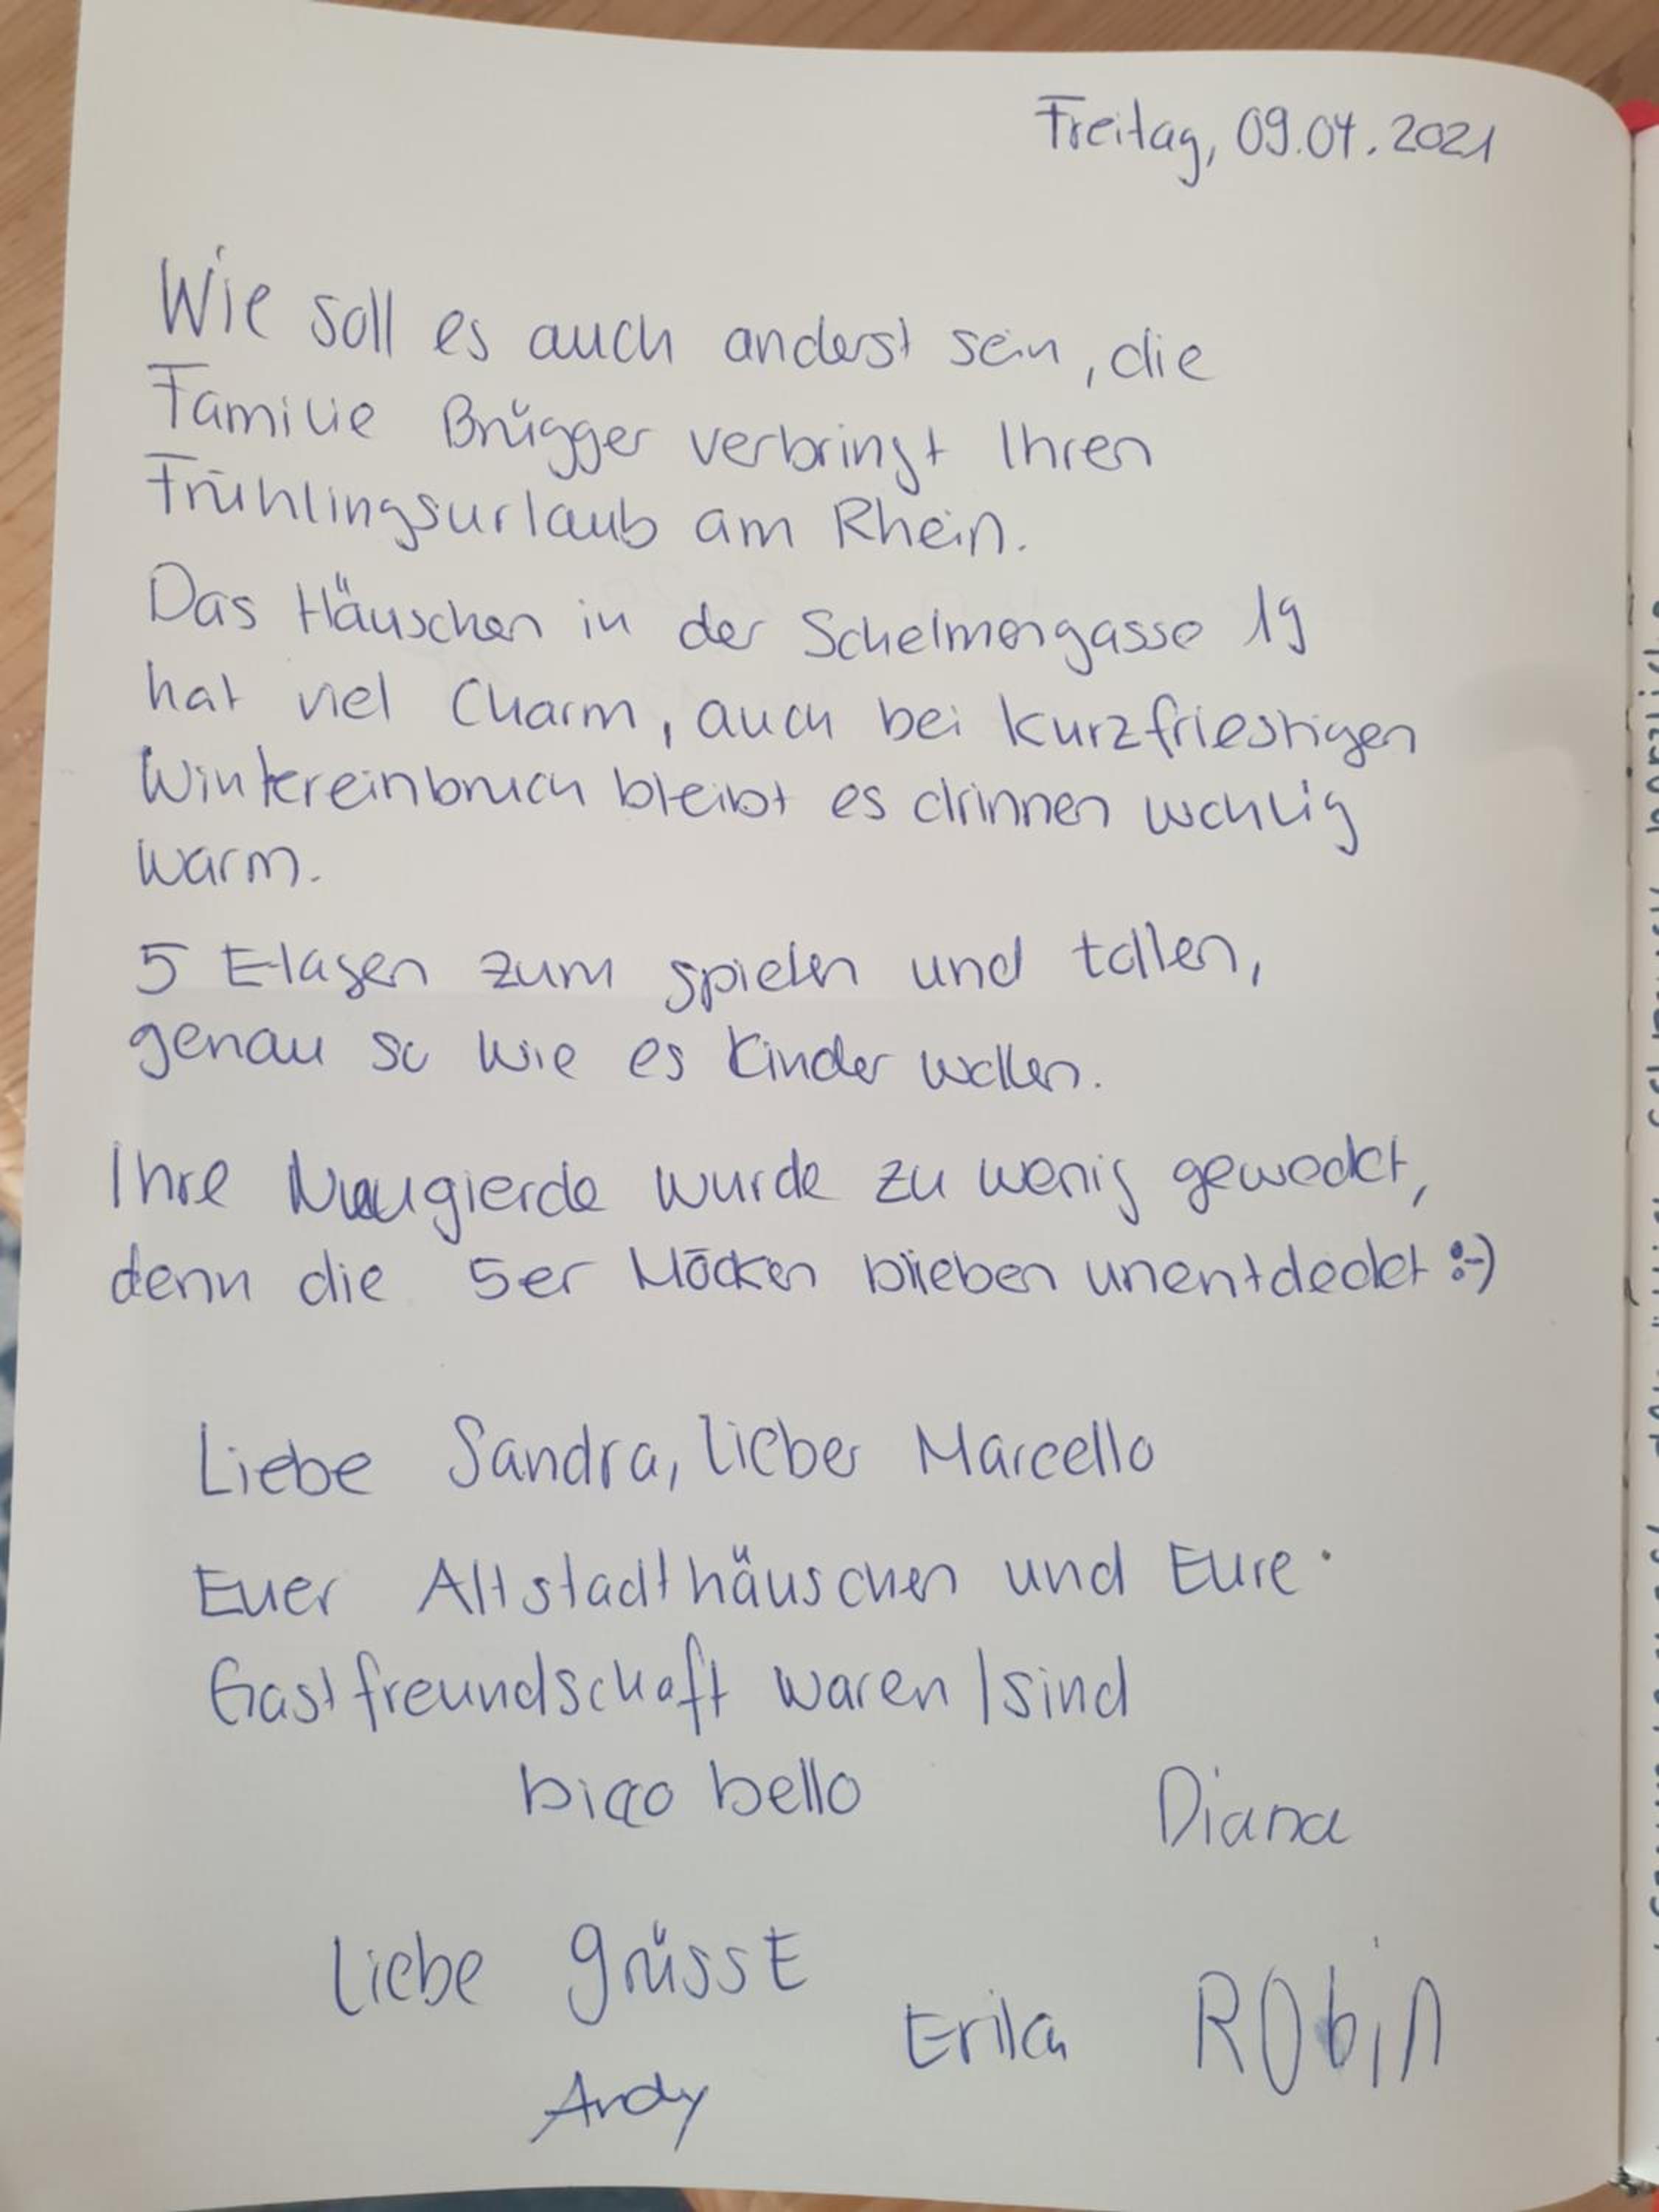 Freitag, 09.04.2021
Wie soll es auch anderst sein, die
Familie Brügger verbringt Ihren
Frühlingsurlaub am Rhein.
Das Häuschen in der Schelmengasse 19
hat viel Charm, auch bei kurzfriestigen
Wintereinbruch bleibt es drinnen wohlig
warm.
5 Etagen zum spielen und tollen,
genau so wie es Kinder wollen.
Ihre Neugierde wurde zu wenig geweckt,
denn die 5er Möcken blieben unentdeckt :-)
Liebe Sandra, lieber Marcello
Euer Altstadthäuschen und Eure
Gastfreundschaft waren/sind
bico bello
Diana
Liebe grüsst
Erika
RObin
Andy